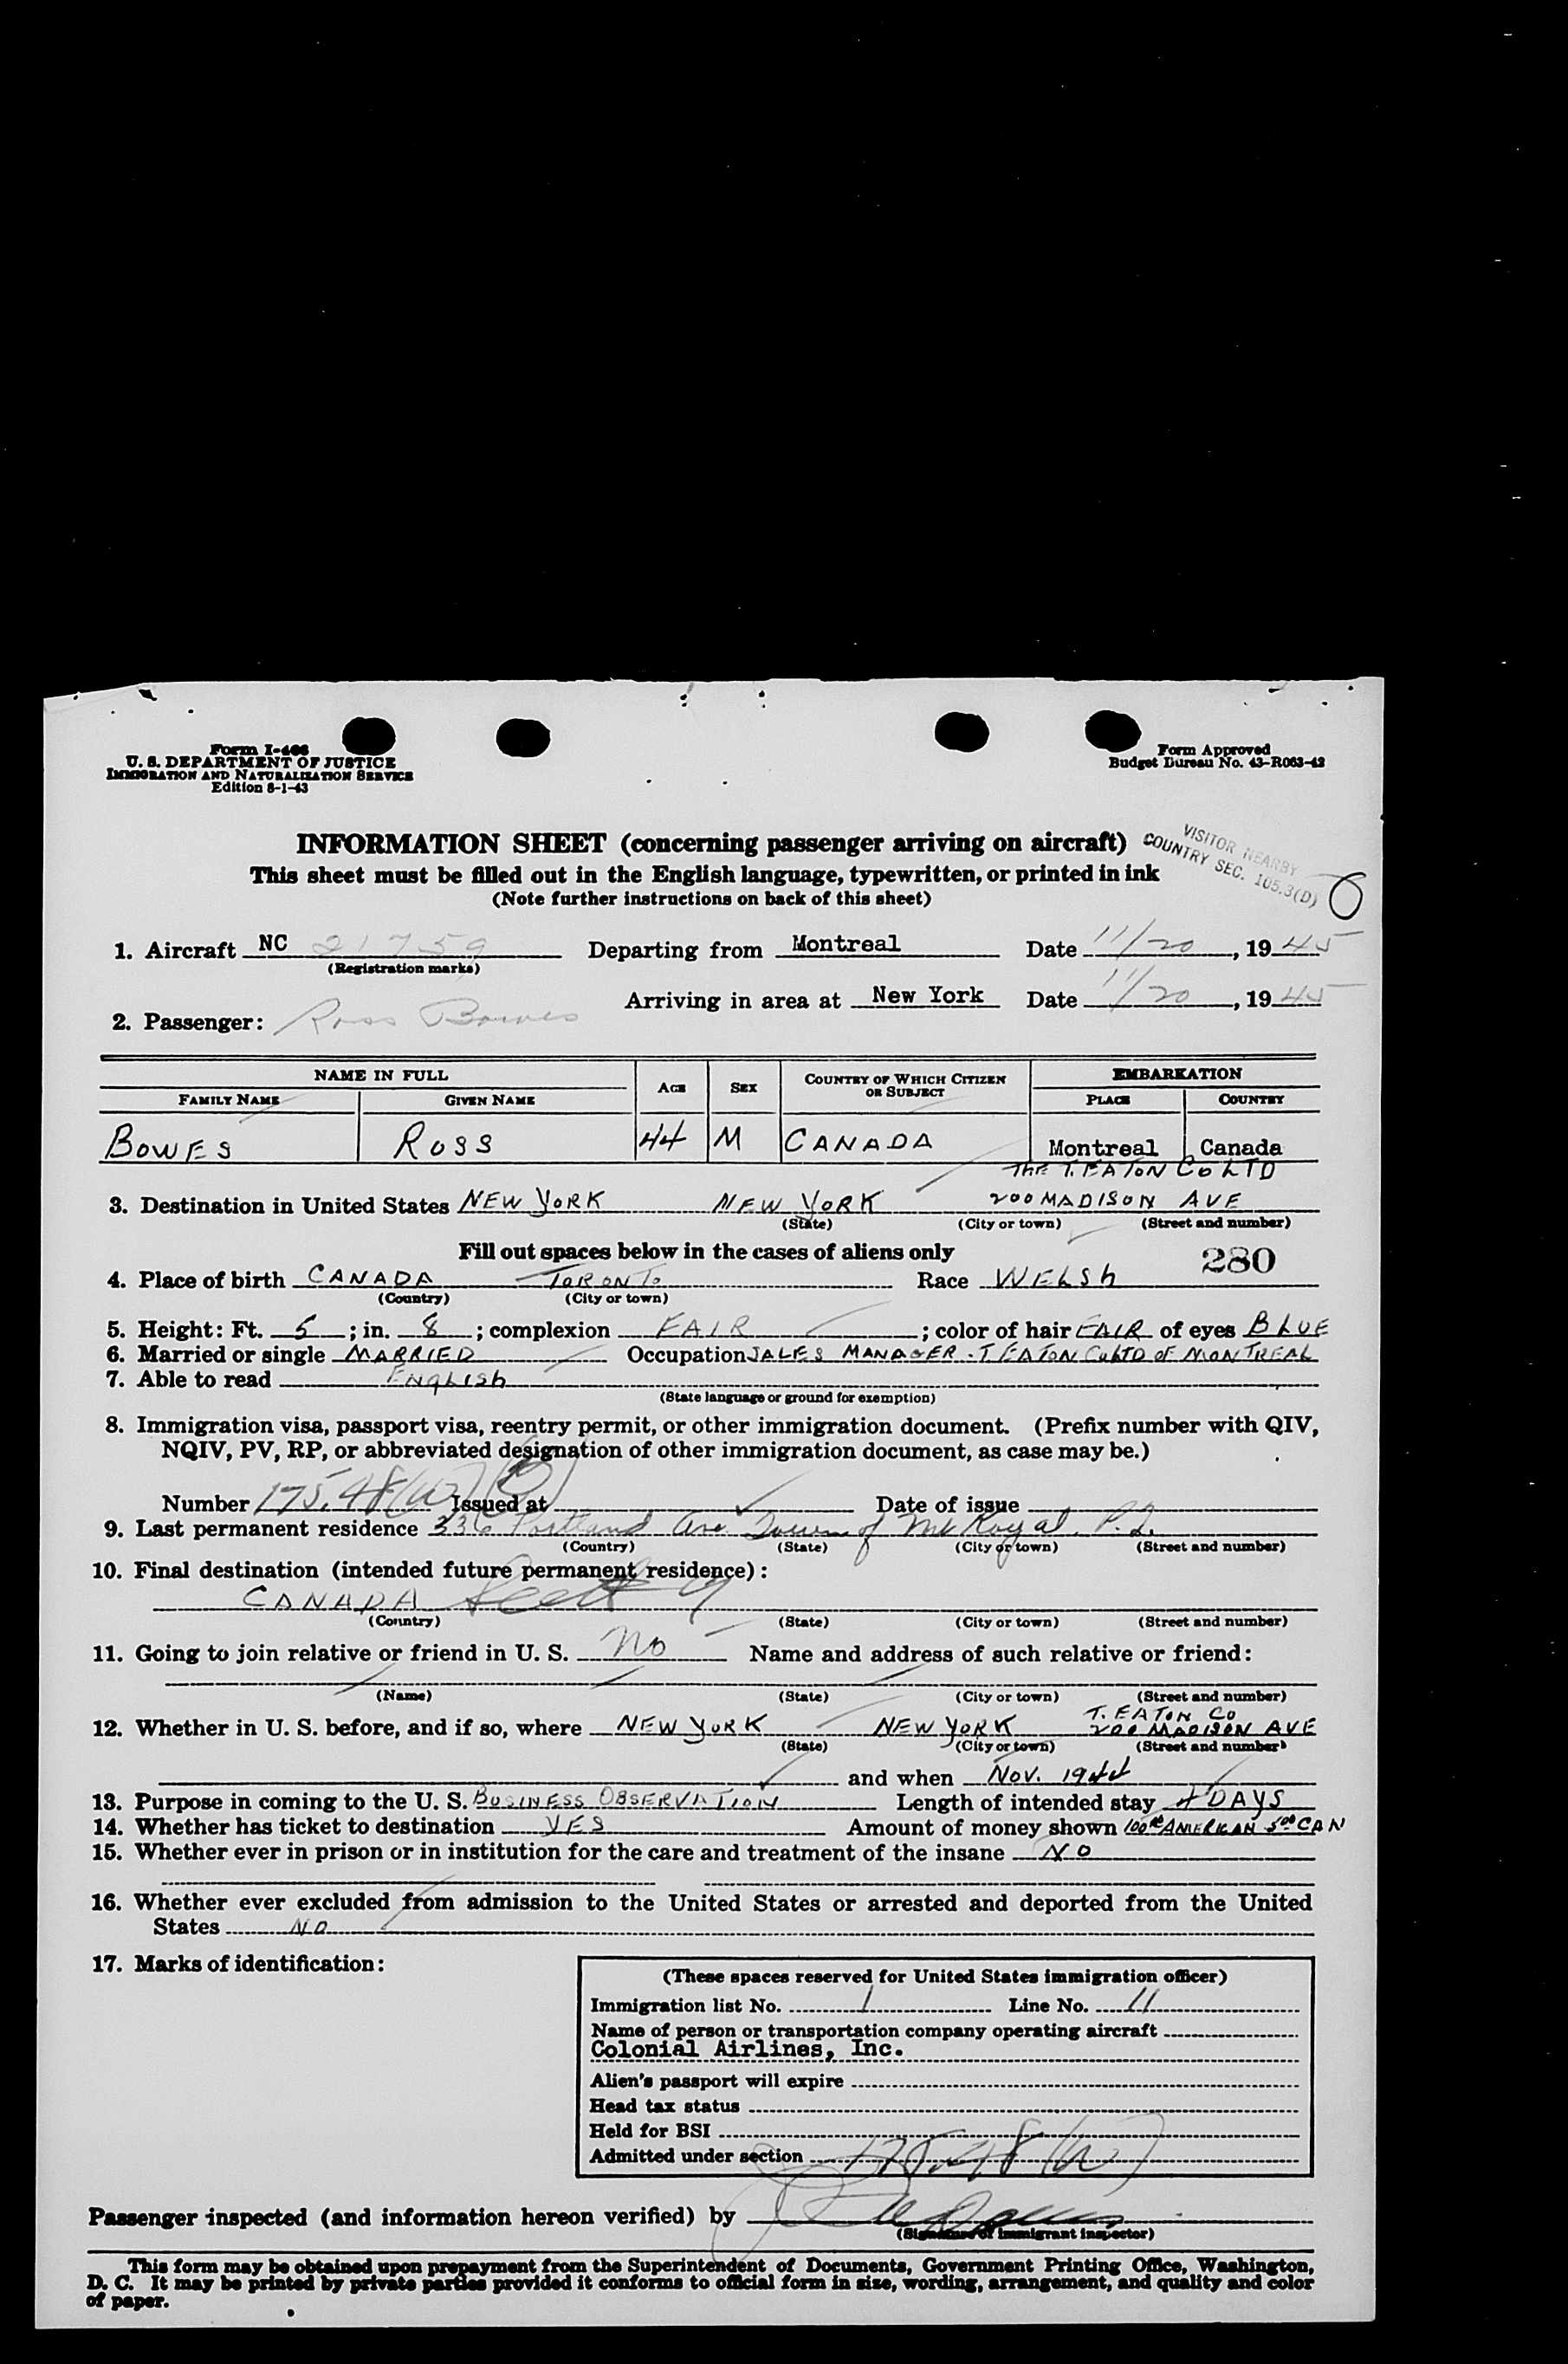 Form I-466
U. S. DEPARTMENT OF JUSTICE
IMMIGRATION AND NATURALIZATION SERVICE
Edition 8-1-43
Form Approved
Budget Bureau No. 43-R063-42
INFORMATION SHEET (concerning passenger arriving on aircraft)
VISITOR NEARBY
COUNTRY SEC. 105.3(D)
This sheet must be filled out in the English language, typewritten, or printed in ink
(Note further instructions on back of this sheet)
1. Aircraft NC 21759 Departing from Montreal Date 11/20, 1945
(Registration marks)
Arriving in area at New York Date 11/20, 1945
2. Passenger: Ross Bowes
NAME IN FULL AGE SEX COUNTRY OF WHICH CITIZEN OR SUBJECT EMBARKATION
FAMILY NAME GIVEN NAME PLACE COUNTRY
BOWES ROSS 44 M CANADA Montreal Canada
THE T. EATON CO LTD
3. Destination in United States NEW YORK NEW YORK 200 MADISON AVE
(State) (City or town) (Street and number)
Fill out spaces below in the cases of aliens only
280
4. Place of birth CANADA TORONTO Race WELSH
(Country) (City or town)
5. Height: Ft. 5; in. 8; complexion FAIR; color of hair FAIR of eyes BLUE
6. Married or single MARRIED Occupation SALES MANAGER - T. EATON CO LTD OF MONTREAL
7. Able to read ENGLISH
(State language or ground for exemption)
8. Immigration visa, passport visa, reentry permit, or other immigration document. (Prefix number with QIV,
NQIV, PV, RP, or abbreviated designation of other immigration document, as case may be.)
Number 175.48(W) Issued at Date of issue
9. Last permanent residence 336 Portland Ave Town of Mt Royal. P.Q.
(Country) (State) (City or town) (Street and number)
10. Final destination (intended future permanent residence):
CANADA
(Country) (State) (City or town) (Street and number)
11. Going to join relative or friend in U. S. No Name and address of such relative or friend:
(Name) (State) (City or town) (Street and number)
T. EATON CO
12. Whether in U. S. before, and if so, where NEW YORK NEW YORK 200 MADISON AVE
(State) (City or town) (Street and number)
and when NOV. 1944
13. Purpose in coming to the U. S. BUSINESS OBSERVATION Length of intended stay 4 DAYS
14. Whether has ticket to destination YES Amount of money shown 100 00 AMERICAN 5 00 CAN
15. Whether ever in prison or in institution for the care and treatment of the insane NO
16. Whether ever excluded from admission to the United States or arrested and deported from the United
States NO
17. Marks of identification:
(These spaces reserved for United States immigration officer)
Immigration list No. 1 Line No. 11
Name of person or transportation company operating aircraft
Colonial Airlines, Inc.
Alien's passport will expire
Head tax status
Held for BSI
Admitted under section 175.48(W)
Passenger inspected (and information hereon verified) by
(Signature of immigrant inspector)
This form may be obtained upon prepayment from the Superintendent of Documents, Government Printing Office, Washington,
D. C. It may be printed by private parties provided it conforms to official form in size, wording, arrangement, and quality and color
of paper.